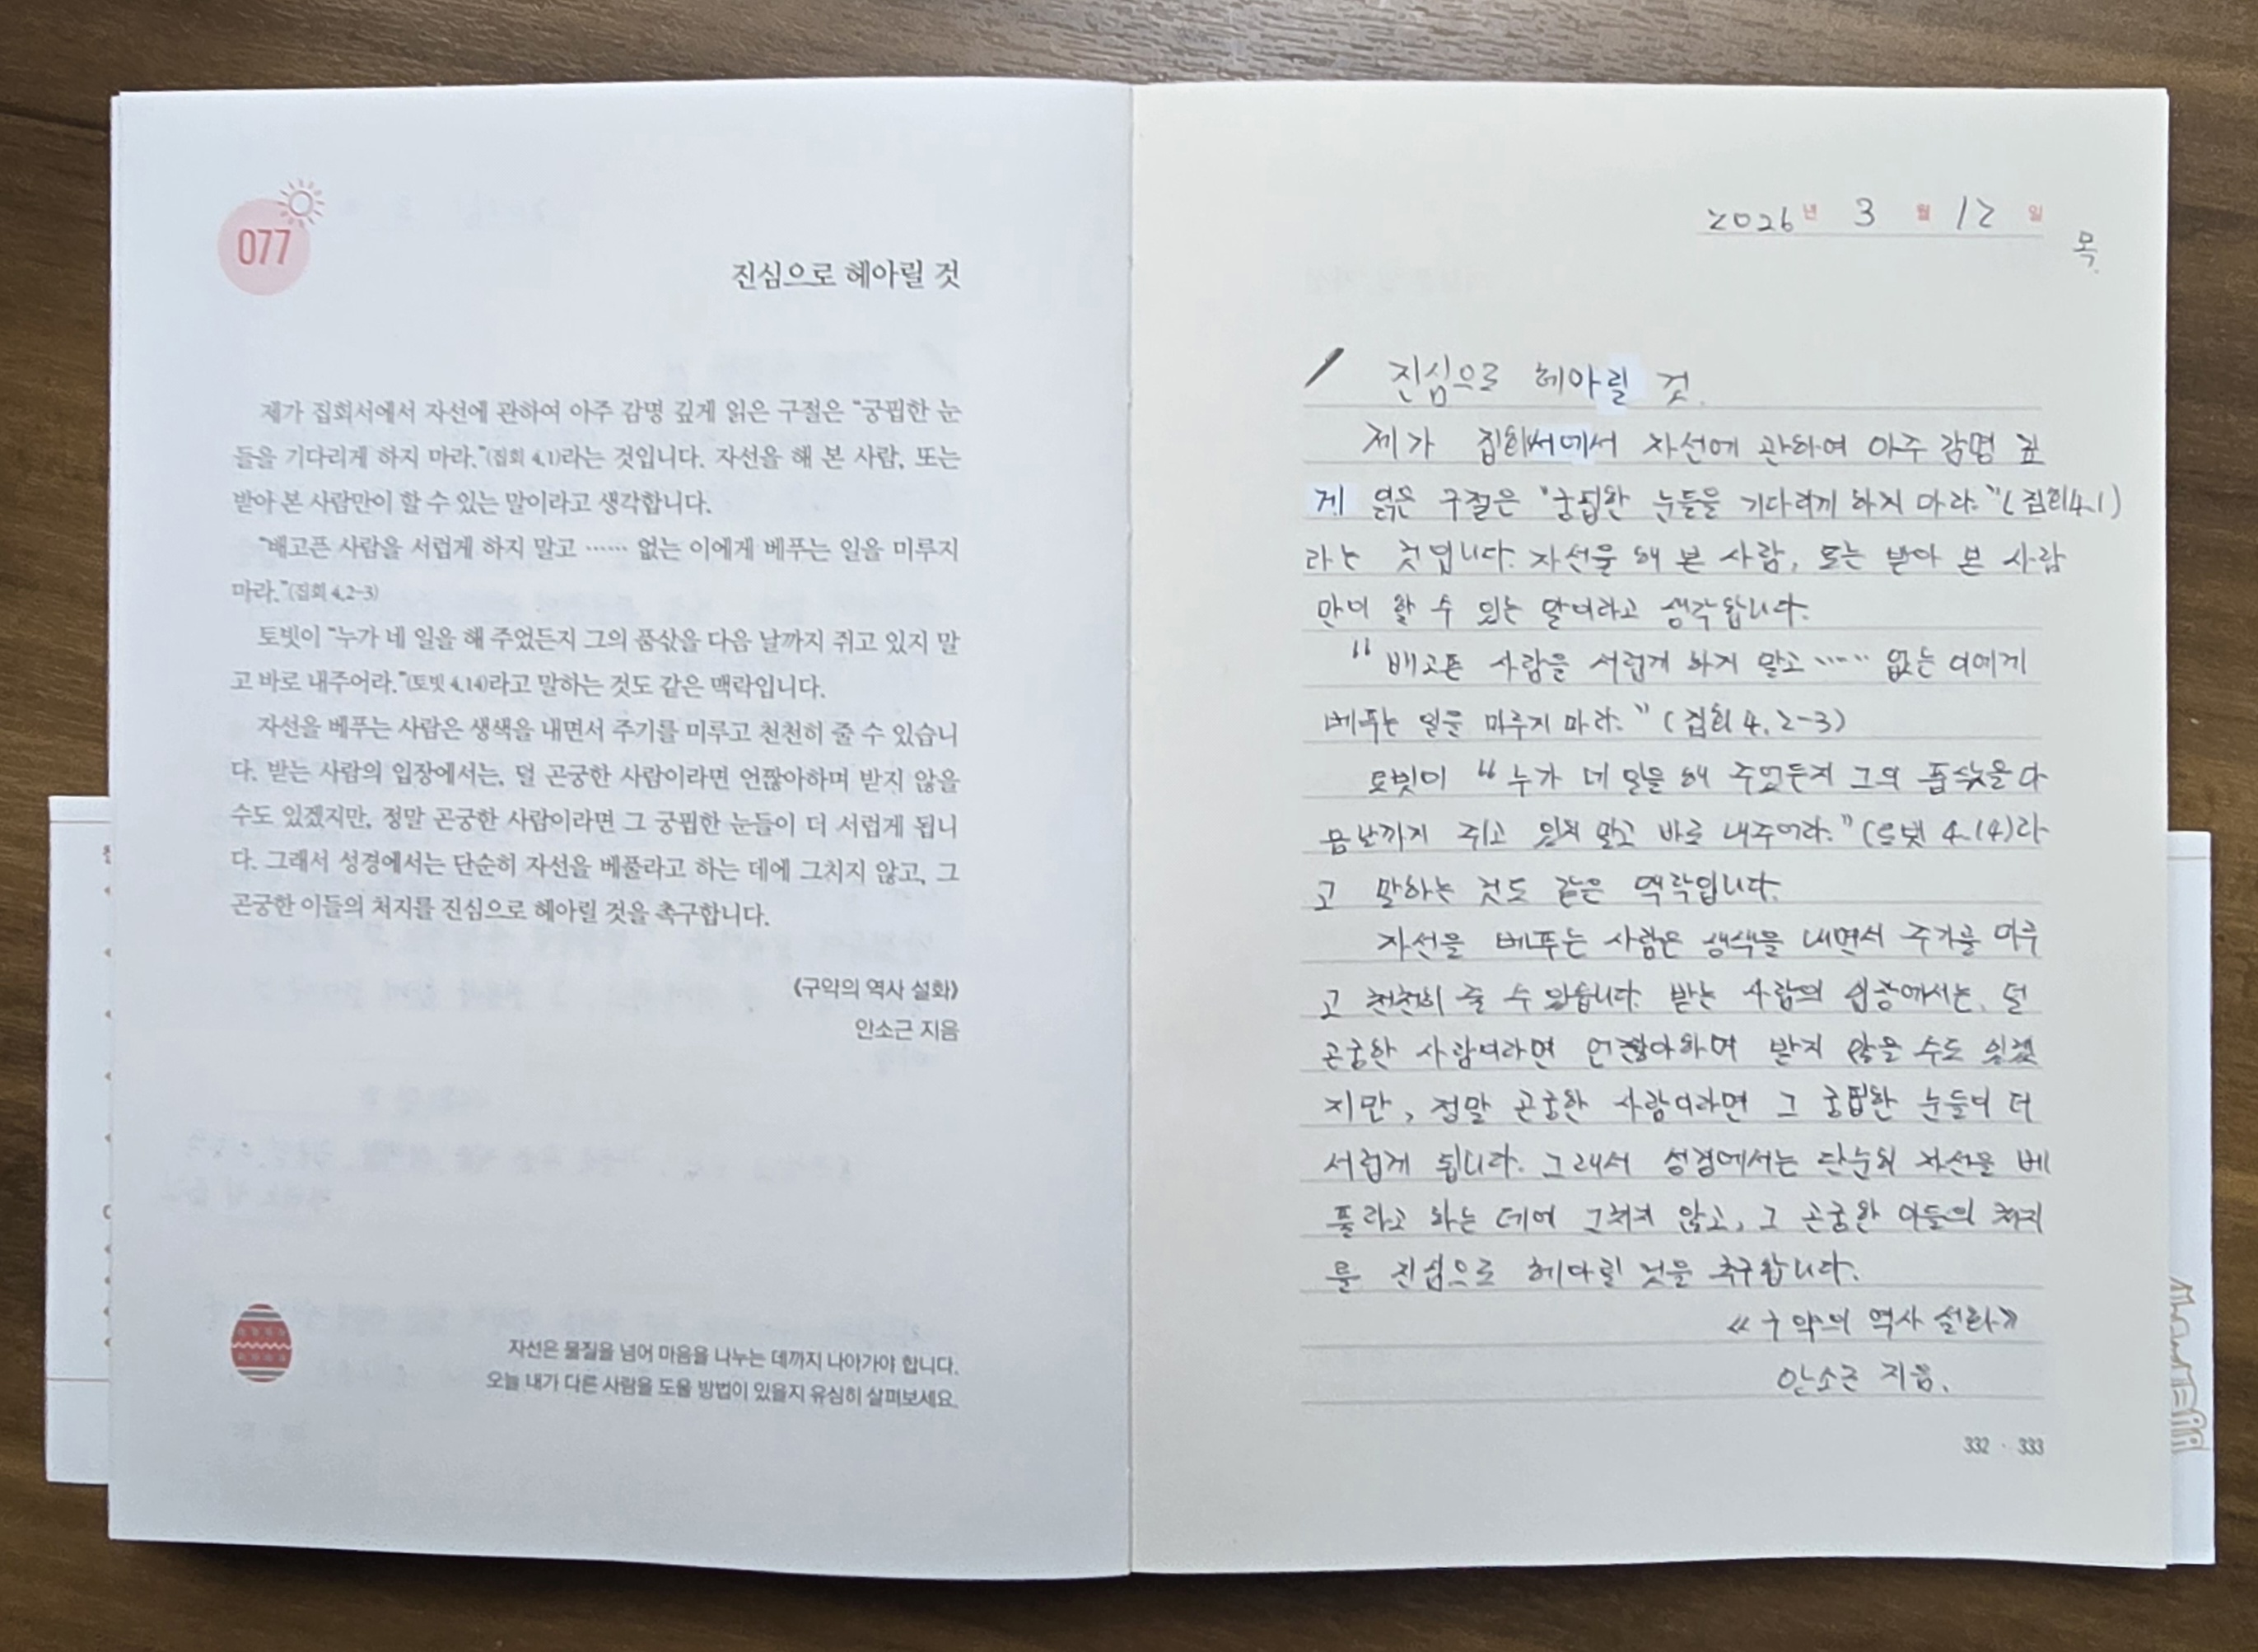 077
진심으로 헤아릴 것
제가 집회서에서 자선에 관하여 아주 감명 깊게 읽은 구절은 “궁핍한 눈
들을 기다리게 하지 마라.”(집회 4,1)라는 것입니다. 자선을 해 본 사람, 또는
받아 본 사람만이 할 수 있는 말이라고 생각합니다.
“배고픈 사람을 서럽게 하지 말고 …… 없는 이에게 베푸는 일을 미루지
마라.”(집회 4,2-3)
토빗이 “누가 네 일을 해 주었든지 그의 품삯을 다음 날까지 쥐고 있지 말
고 바로 내주어라.”(토빗 4,14)라고 말하는 것도 같은 맥락입니다.
자선을 베푸는 사람은 생색을 내면서 주기를 미루고 천천히 줄 수 있습니
다. 받는 사람의 입장에서는, 덜 곤궁한 사람이라면 언짢아하며 받지 않을
수도 있겠지만, 정말 곤궁한 사람이라면 그 궁핍한 눈들이 더 서럽게 됩니
다. 그래서 성경에서는 단순히 자선을 베풀라고 하는 데에 그치지 않고, 그
곤궁한 이들의 처지를 진심으로 헤아릴 것을 촉구합니다.
《구약의 역사 설화》
안소근 지음
자선은 물질을 넘어 마음을 나누는 데까지 나아가야 합니다.
오늘 내가 다른 사람을 도울 방법이 있을지 유심히 살펴보세요.
2026년 3월 12일
목.
진심으로 헤아릴 것.
제가 집회서에서 자선에 관하여 아주 감명 깊
게 읽은 구절은 “궁핍한 눈들을 기다리게 하지 마라.”(집회4.1)
라는 것입니다. 자선을 해 본 사람, 또는 받아 본 사람
만이 할 수 있는 말이라고 생각됩니다.
“배고픈 사람을 서럽게 하지 말고 …… 없는 이에게
베푸는 일을 미루지 마라.”(집회 4, 2-3)
토빗이 “누가 네 일을 해 주었든지 그의 품삯을 다
음 날까지 쥐고 있지 말고 바로 내주어라.”(토빗 4.14)라
고 말하는 것도 같은 맥락입니다.
자선을 베푸는 사람은 생색을 내면서 주기를 미루
고 천천히 줄 수 있습니다. 받는 사람의 입장에서는, 덜
곤궁한 사람이라면 언짢아하며 받지 않을 수도 있겠
지만, 정말 곤궁한 사람이라면 그 궁핍한 눈들이 더
서럽게 됩니다. 그래서 성경에서는 단순히 자선을 베
풀라고 하는 데에 그치지 않고, 그 곤궁한 이들의 처지
를 진심으로 헤아릴 것을 촉구합니다.
《구약의 역사 설화》
안소근 지음.
332 · 333